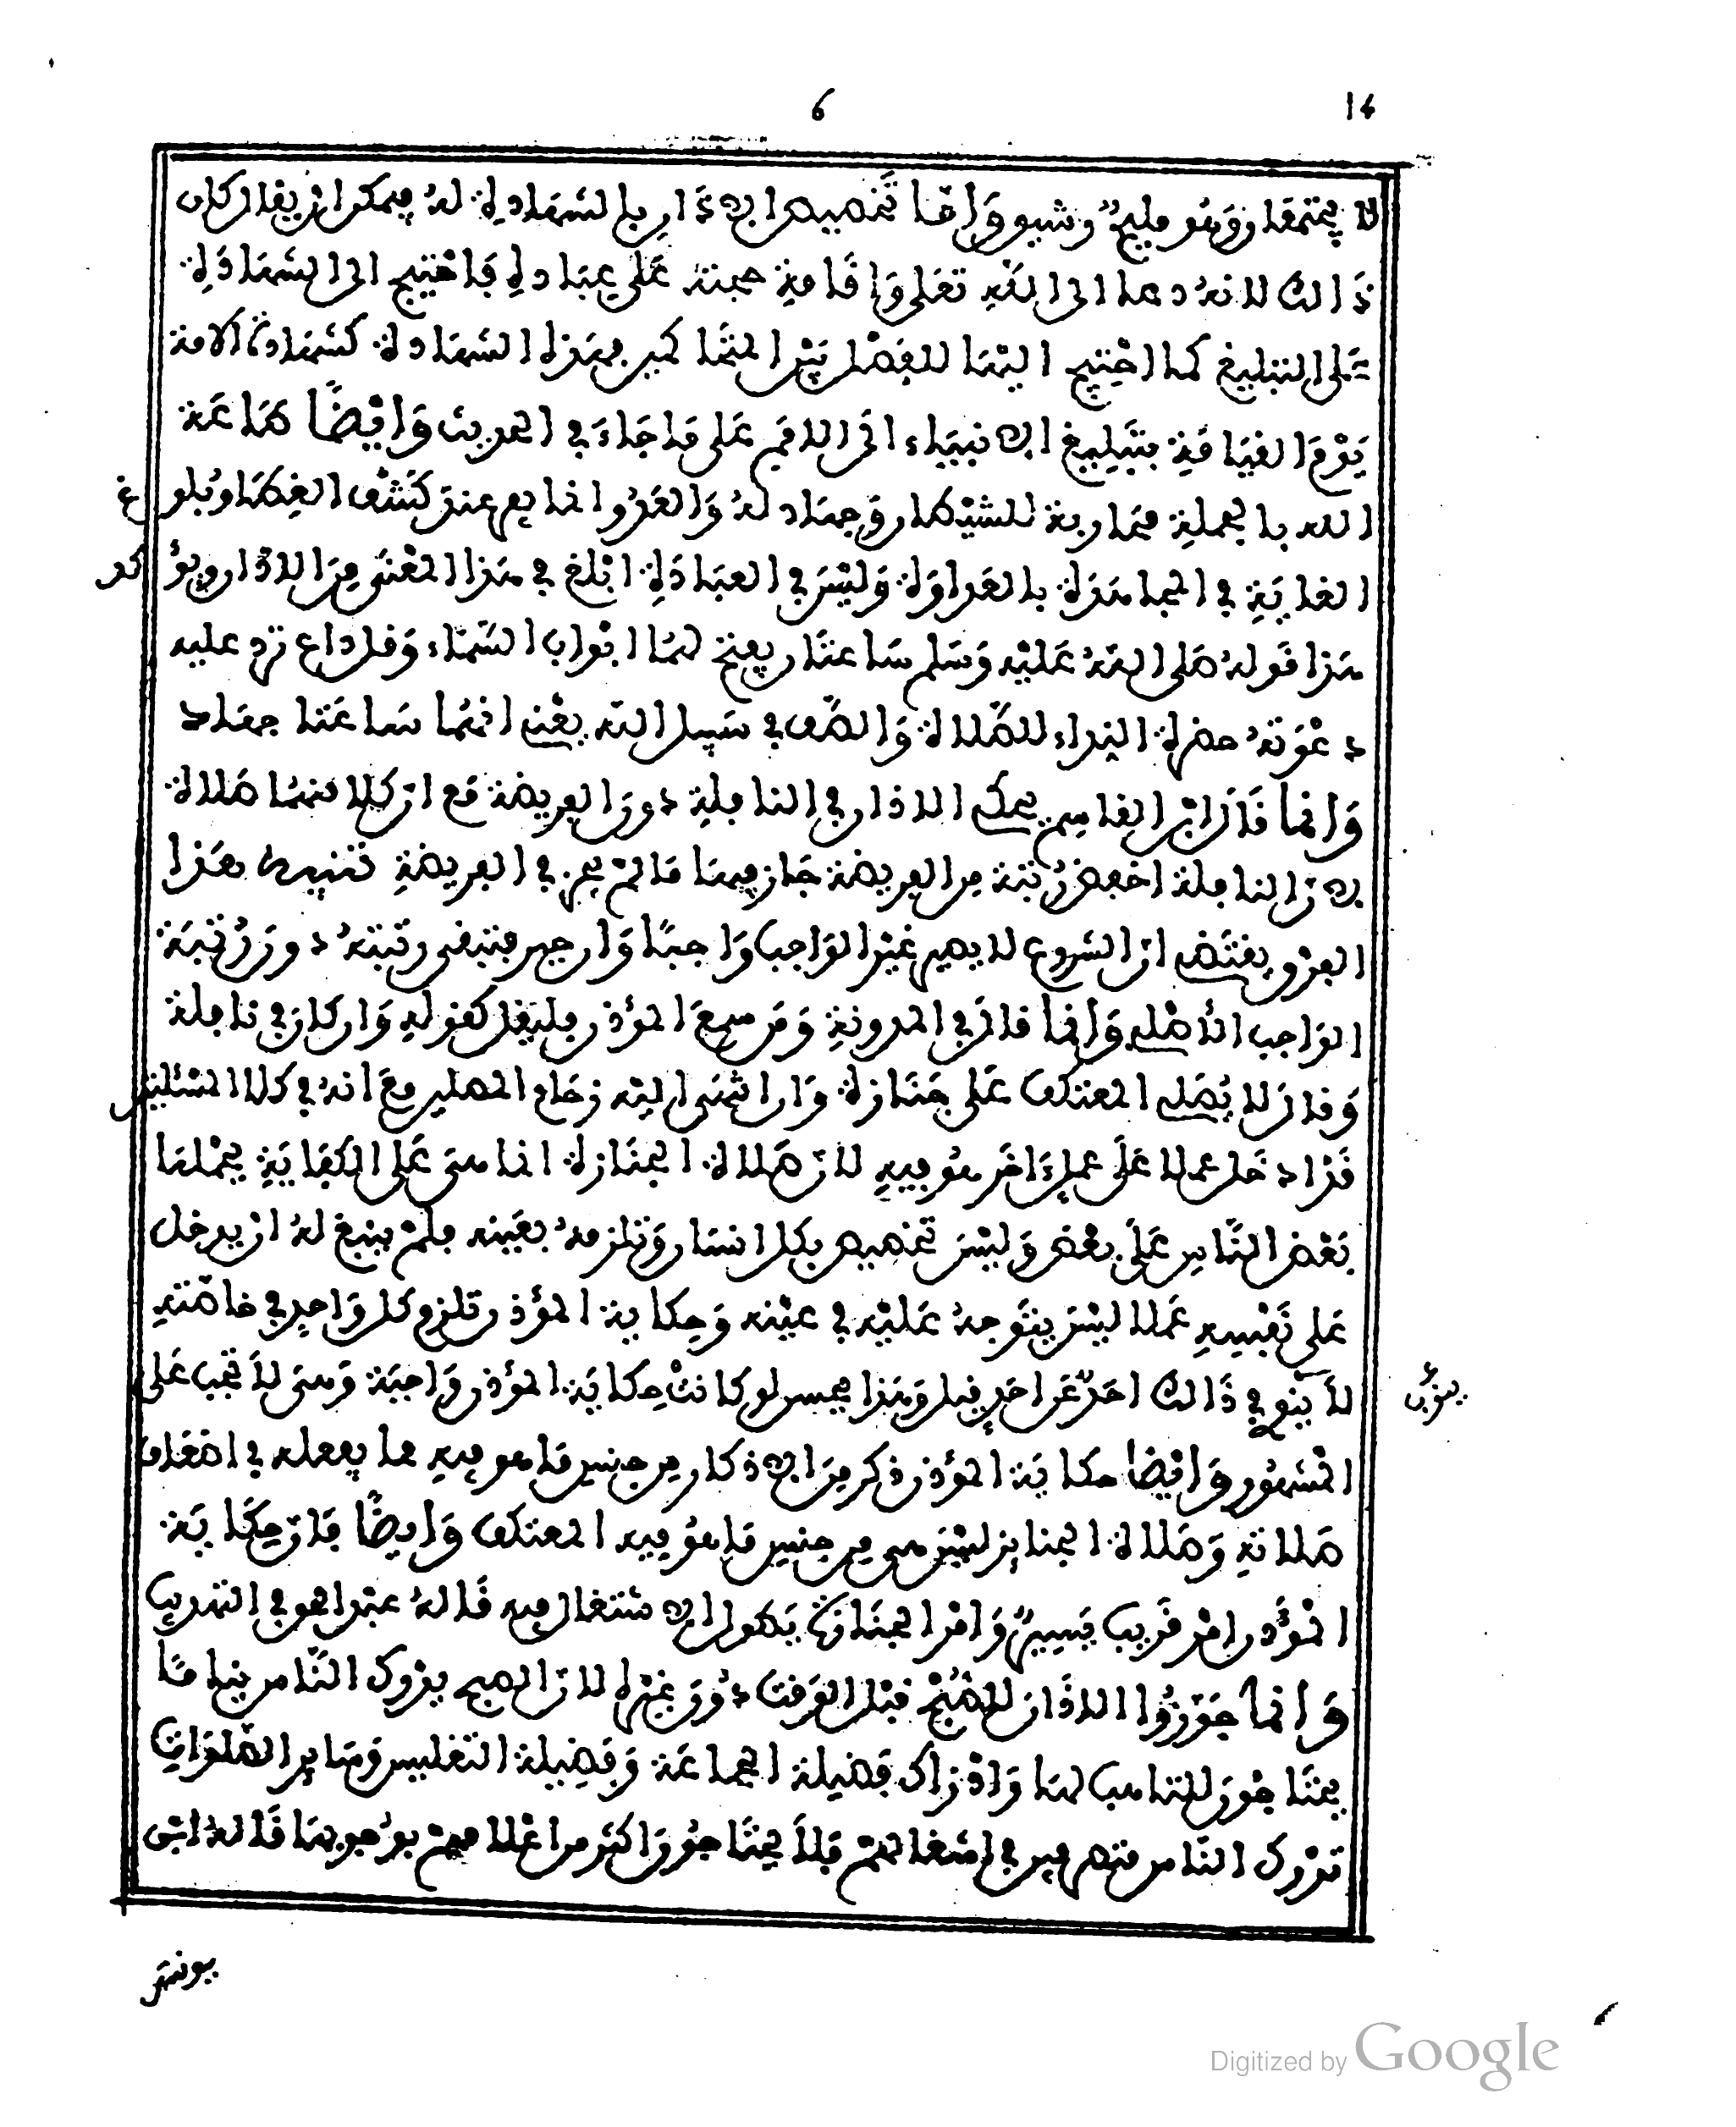 6
14
لا يجتمعان وهو مليح وشيق وَإنما تخصيص الأذان بالشهادة له فيمكن أن يقال كان
ذَالك لأنه دعا الى الله تعلى وَإقامة حجته عَلى عباده فَاحْتيج الى الشهادَة
عَلى التبليغ كما احْتيج اليْها للفصْل بَيْن فهذه الشهادة كشهادة الامة
يَوْمَ القيامَة بتبليغ الانبياء الى الامم عَلى مَا جَاءَ في الحديث وَايْضًا طاعَة
الله بالجملة محاربة للشيْطان وجهاد لهُ وَالعَدُو انما يعهر عند كَشْف الغطاء وبُلوغ
الغاية في المجاهَدة بالعَداوَة وَليْسَ في العبادَة ابْلغ في هذا المعْنى مِنَ الاذان ويؤكد
هَذا قَولهُ صَلى اللهُ عَليْه وَسَلم سَاعتان يفتح لهُا ابْوَاب السَّمَاء وَقل داع تردّ عليه
دعْوَتهُ حضرة النداء للصَّلاة وَالصَّف في سَبيل الله يعْني انهُما سَاعَتا جهاد
وَإنما قَالَ ابْن القاسِم يحكى الاذان في النافلة دون الفريضة مَع انّ كلا منهُما صَلاة
لانّ النافلة اخفض رُتبة من الفريضة جَاز فيهَا مَا لمْ يجز في الفريضة تنبيه هَذا
الفرْق يقتَضى انّ الشروع لا يصير غيْرَ الوَاجب وَاجبًا وَان صير فتبقى رتبتهُ دون رُتبَة
الوَاجب الأصْلي وَإنما قالَ في المدونة وَمَن سمعَ المؤذن فليَقل كقوله وَان كانَ في نافلة
وَقال لا يُصَلي المعتكف عَلى جَنَازة وَان انتهى اليْه زحَام المصلين معَ انهُ في كلا المسْئلتين
قَدْ ادخَل عملا عَلى عمل ءاخَر هُو فيه لانّ صَلاة الجنَازة انما هى عَلى الكفَايَة يحْملها
بَعْض النَّاس عَلى بعْض وَليْسَ تخصيص بكل انسَان وَتلزمهُ بعَيْنه فلمْ ينبغ لهُ انْ يدخل
عَلى نَفْسه عَملا ليْسَ يتوَجهُ عَليْه في عيْنه وَحكاية المؤذن تلزم كل وَاحد في خاصّته
لاَ ينُوب في ذَالك احَدٌ عَن احَد قيل وَهَذا يحسن لوْ كانتْ حكايَة المؤذن وَاجبَة وَهى لاَ تجب عَلى
ينوب
المشهُور وَايْضًا حكايَة المؤذن ذكر مِنَ الاذكار مِن جنس مَا هو فيه مما يفعله في اضعاف
صَلاته وَصَلاة الجنائز ليْسَ هى من جنس مَا هُو فيه المعتكف وَايضًا فَانّ حكَايَة
المؤذن امْر قَريب يَسيرٌ وَامْر الجنَازة يَطول الاشتغال فيه قَالهُ عبْد الحق في التهذيب
وَإنما جَوَّزُوا الاذَان للصُّبْح قَبْل الوَقت دُون غيْرها لانّ الصبح يدْرك النَّاس نيامًا
فيحتَاجُون للتاهب لهَا وَادْرَاك فَضيلة الجماعَة وَفضيلة التغليس وَسَائر الصَّلوَات
تدْرك النَّاس متصرفين في اشغالهمْ فَلاَ يحتَاجُون اكثر من اعْلامهمْ بوُجوبهَا قَالهُ ابْن
يونس
Digitized by Google